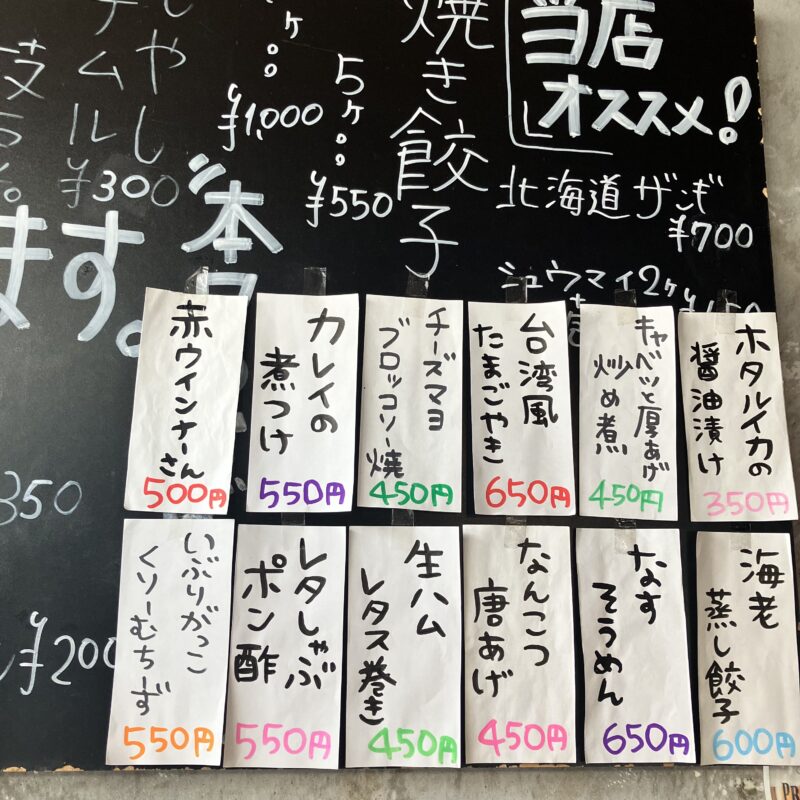 当店
オススメ!
北海道ザンギ
¥700
シュウマイ2ヶ
焼き餃子
5ヶ
¥550
¥1,000
¥300
本日
ます。
350
¥200
ホタルイカの
醤油漬け
350円
キャベツと厚あげ
炒め煮
450円
台湾風
たまごやき
650円
チーズマヨ
ブロッコリー焼
450円
カレイの
煮つけ
550円
赤ウインナーさん
500円
海老
蒸し餃子
600円
なす
そうめん
650円
なんこつ
唐あげ
450円
生ハム
レタス巻き
450円
レタしゃぶ
ポン酢
550円
いぶりがっこ
くりーむちーず
550円